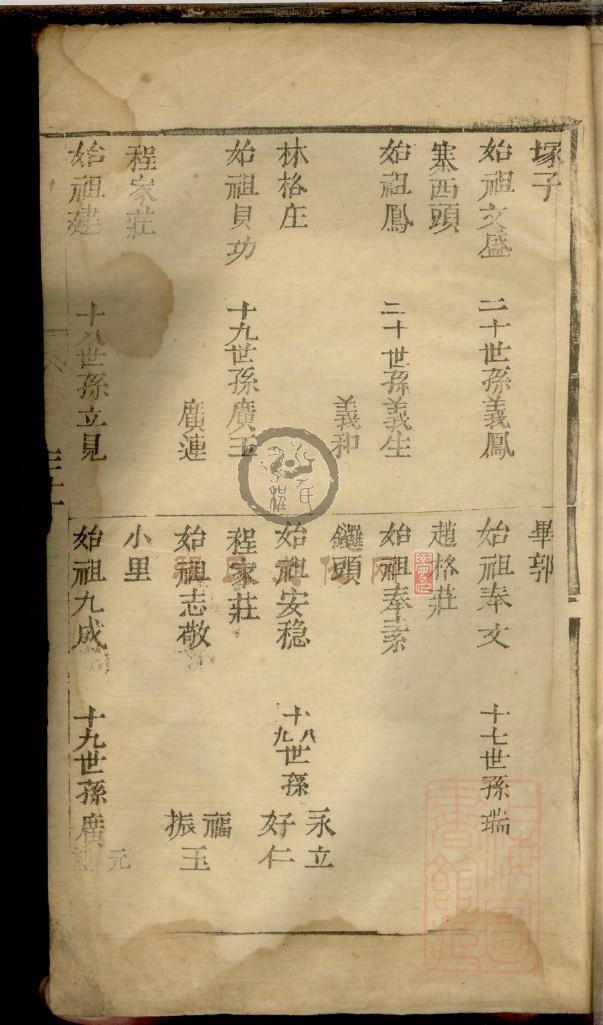 塚子
始祖文盛 二十世孫義鳳
寨西頭
始祖鳳 二十世孫義生
義和
林格庄
始祖貝功 十九世孫廣玉
廣連
程家莊
始祖建 十八世孫立見
畢郭
始祖奉文 十七世孫瑞
趙格莊
始祖奉素
頭
始祖安穩 十八九世孫永立
好仁
程家莊
福玉
始祖志敬 振
小里
元
始祖九成 十九世孫廣